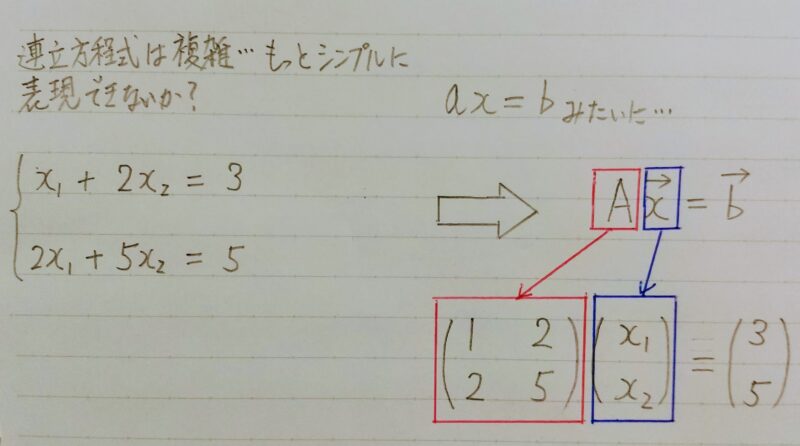 連立方程式は複雑… もっとシンプルに
表現できないか?
ax = b みたいに…
x₁ + 2x₂ = 3
2x₁ + 5x₂ = 5
A x⃗ = b⃗
(1 2) (x₁) = (3)
(2 5) (x₂) (5)